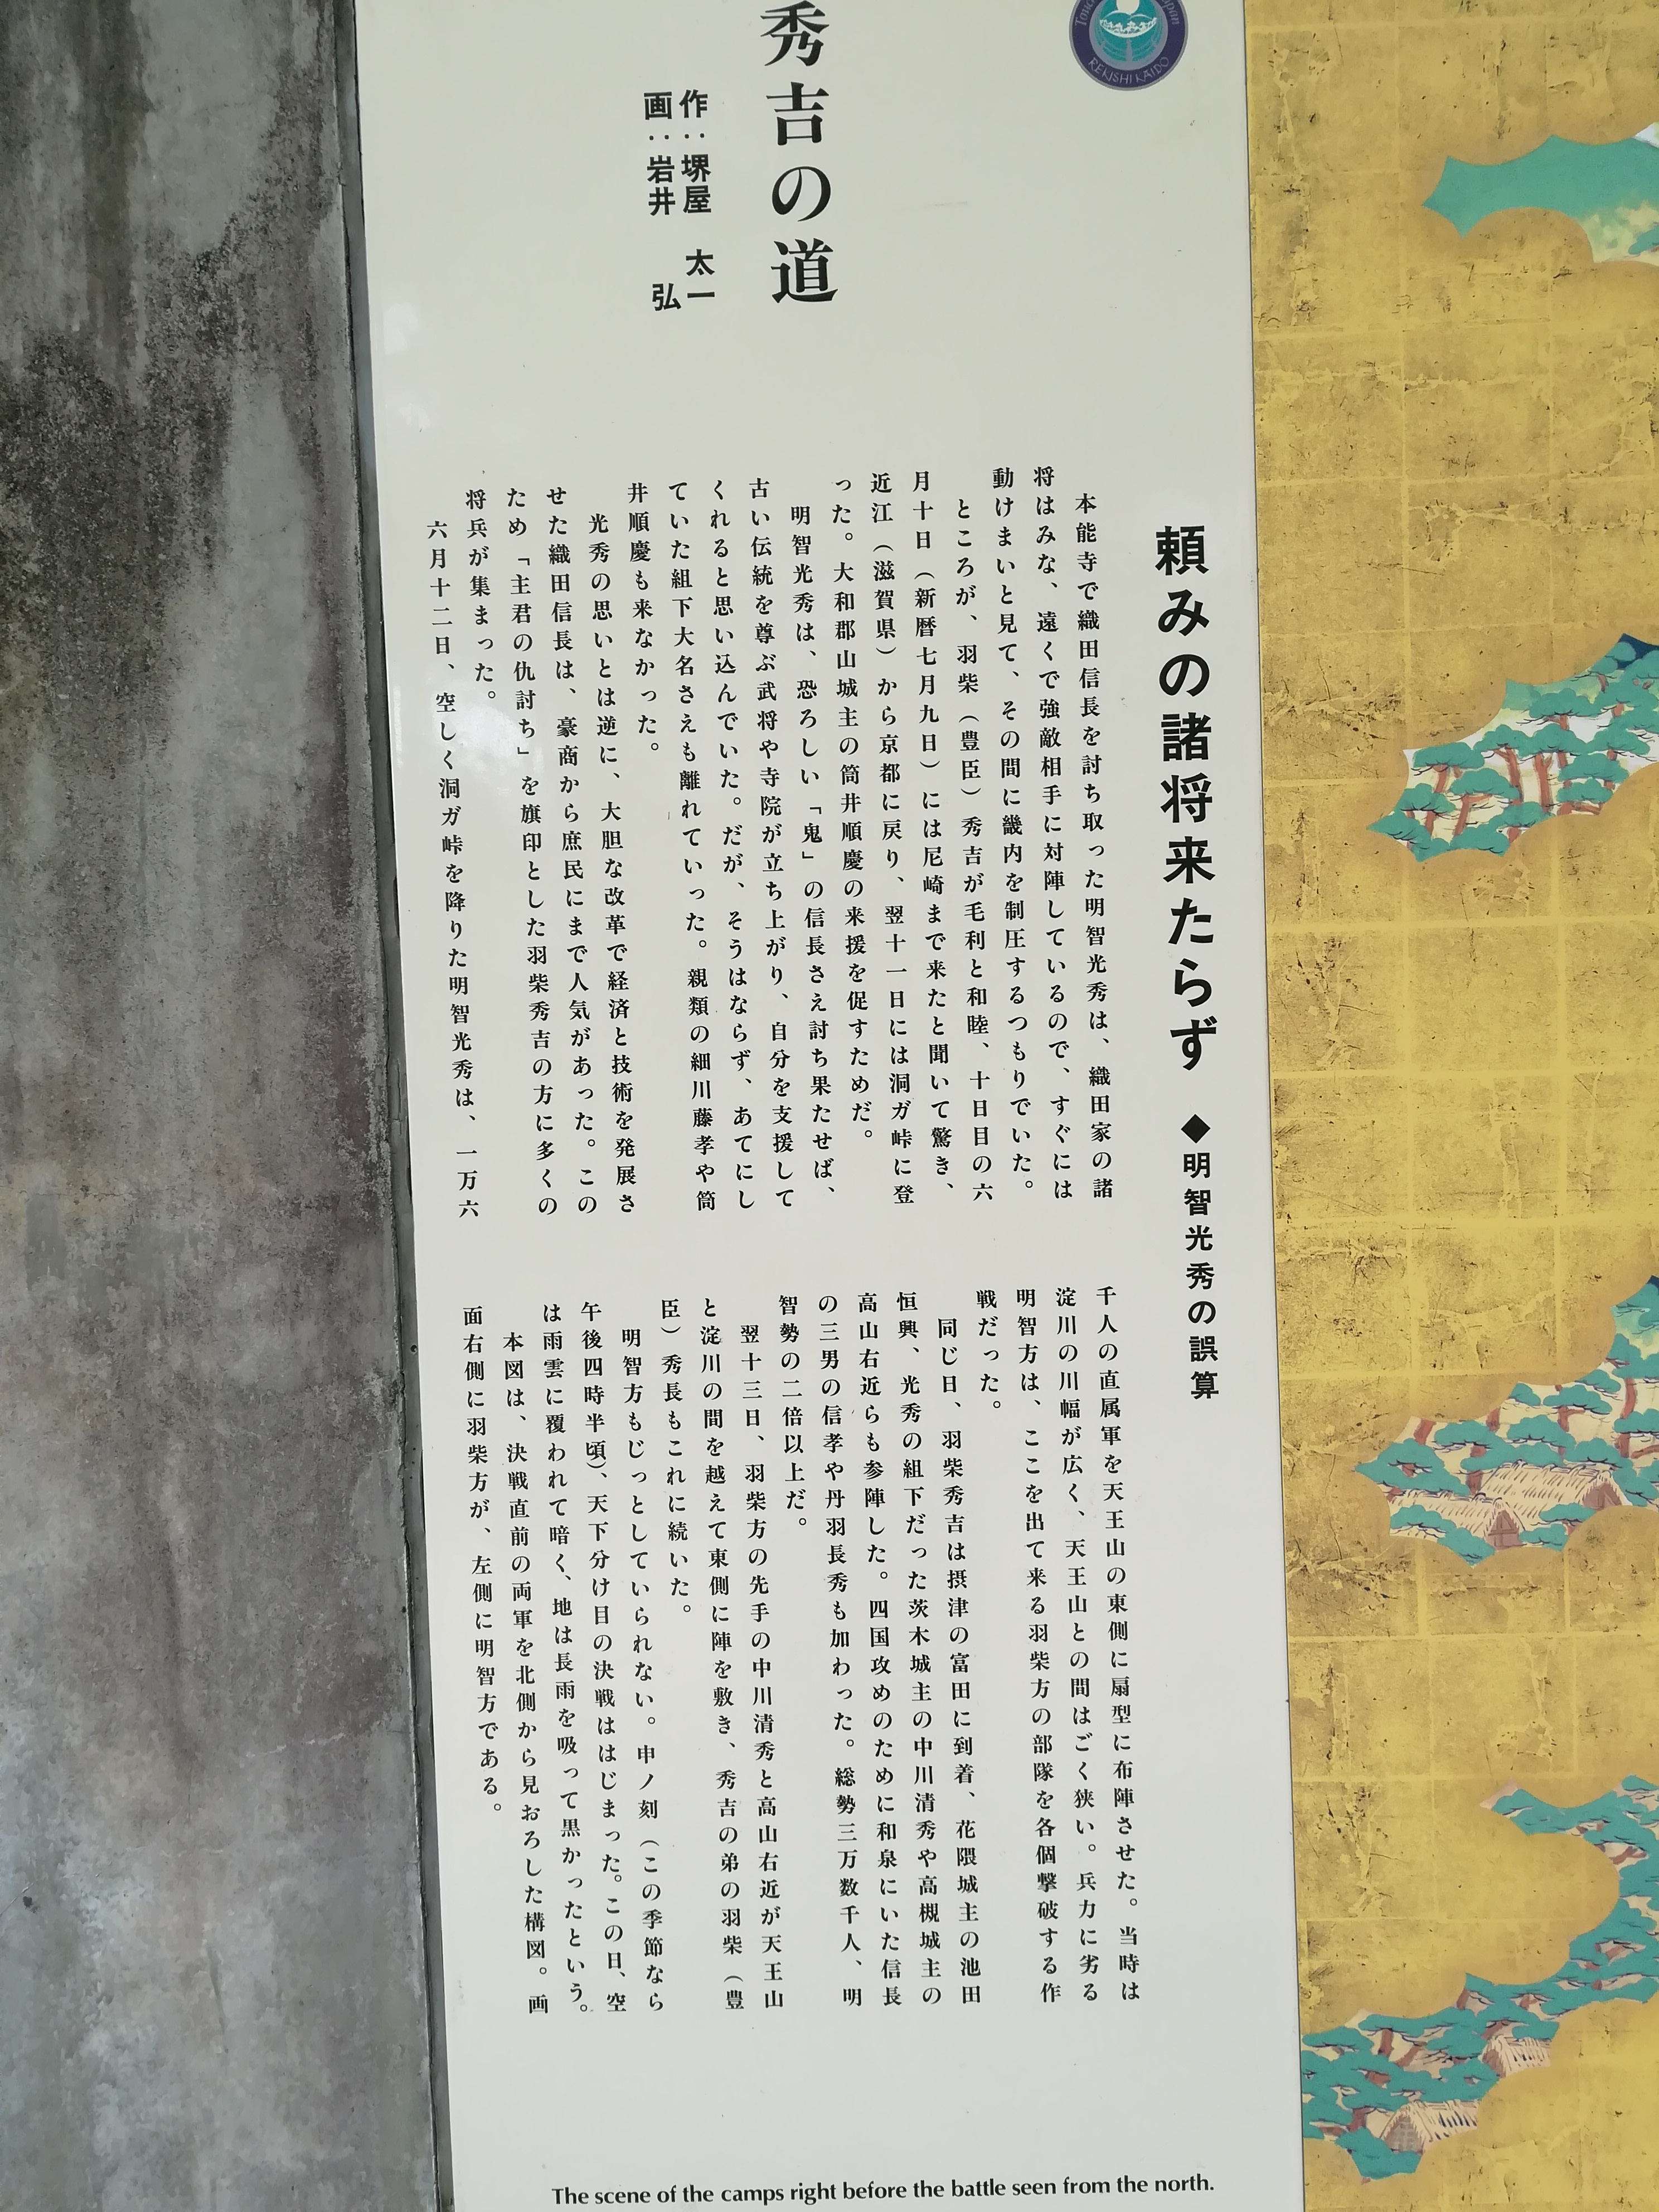 秀吉の道
作：堺屋 太一
画：岩井 弘
REKISHI KAIDO
頼みの諸将来たらず ◆明智光秀の誤算
本能寺で織田信長を討ち取った明智光秀は、織田家の諸
将はみな、遠くで強敵相手に対陣しているので、すぐには
動けまいと見て、その間に畿内を制圧するつもりでいた。
ところが、羽柴（豊臣）秀吉が毛利と和睦、十日目の六
月十日（新暦七月九日）には尼崎まで来たと聞いて驚き、
近江（滋賀県）から京都に戻り、翌十一日には洞ガ峠に登
った。大和郡山城主の筒井順慶の来援を促すためだ。
明智光秀は、恐ろしい「鬼」の信長さえ討ち果たせば、
古い伝統を尊ぶ武将や寺院が立ち上がり、自分を支援して
くれると思い込んでいた。だが、そうはならず、あてにし
ていた組下大名さえも離れていった。親類の細川藤孝や筒
井順慶も来なかった。
光秀の思いとは逆に、大胆な改革で経済と技術を発展さ
せた織田信長は、豪商から庶民にまで人気があった。この
ため「主君の仇討ち」を旗印とした羽柴秀吉の方に多くの
将兵が集まった。
六月十二日、空しく洞ガ峠を降りた明智光秀は、一万六
千人の直属軍を天王山の東側に扇型に布陣させた。当時は
淀川の川幅が広く、天王山との間はごく狭い。兵力に劣る
明智方は、ここを出て来る羽柴方の部隊を各個撃破する作
戦だった。
同じ日、羽柴秀吉は摂津の富田に到着、花隈城主の池田
恒興、光秀の組下だった茨木城主の中川清秀や高槻城主の
高山右近らも参陣した。四国攻めのために和泉にいた信長
の三男の信孝や丹羽長秀も加わった。総勢三万数千人、明
智勢の二倍以上だ。
翌十三日、羽柴方の先手の中川清秀と高山右近が天王山
と淀川の間を越えて東側に陣を敷き、秀吉の弟の羽柴（豊
臣）秀長もこれに続いた。
明智方もじっとしていられない。申ノ刻（この季節なら
午後四時半頃）、天下分け目の決戦ははじまった。この日、空
は雨雲に覆われて暗く、地は長雨を吸って黒かったという。
本図は、決戦直前の両軍を北側から見おろした構図。画
面右側に羽柴方が、左側に明智方である。
The scene of the camps right before the battle seen from the north.